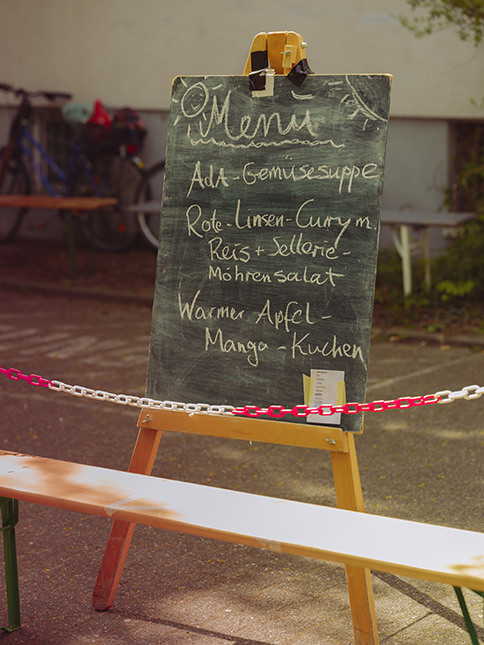 Menü
Adt-Gemüsesuppe
Rote-Linsen-Curry m.
Reis + Sellerie-
Möhrensalat
Warmer Apfel-
Manga-Kuchen